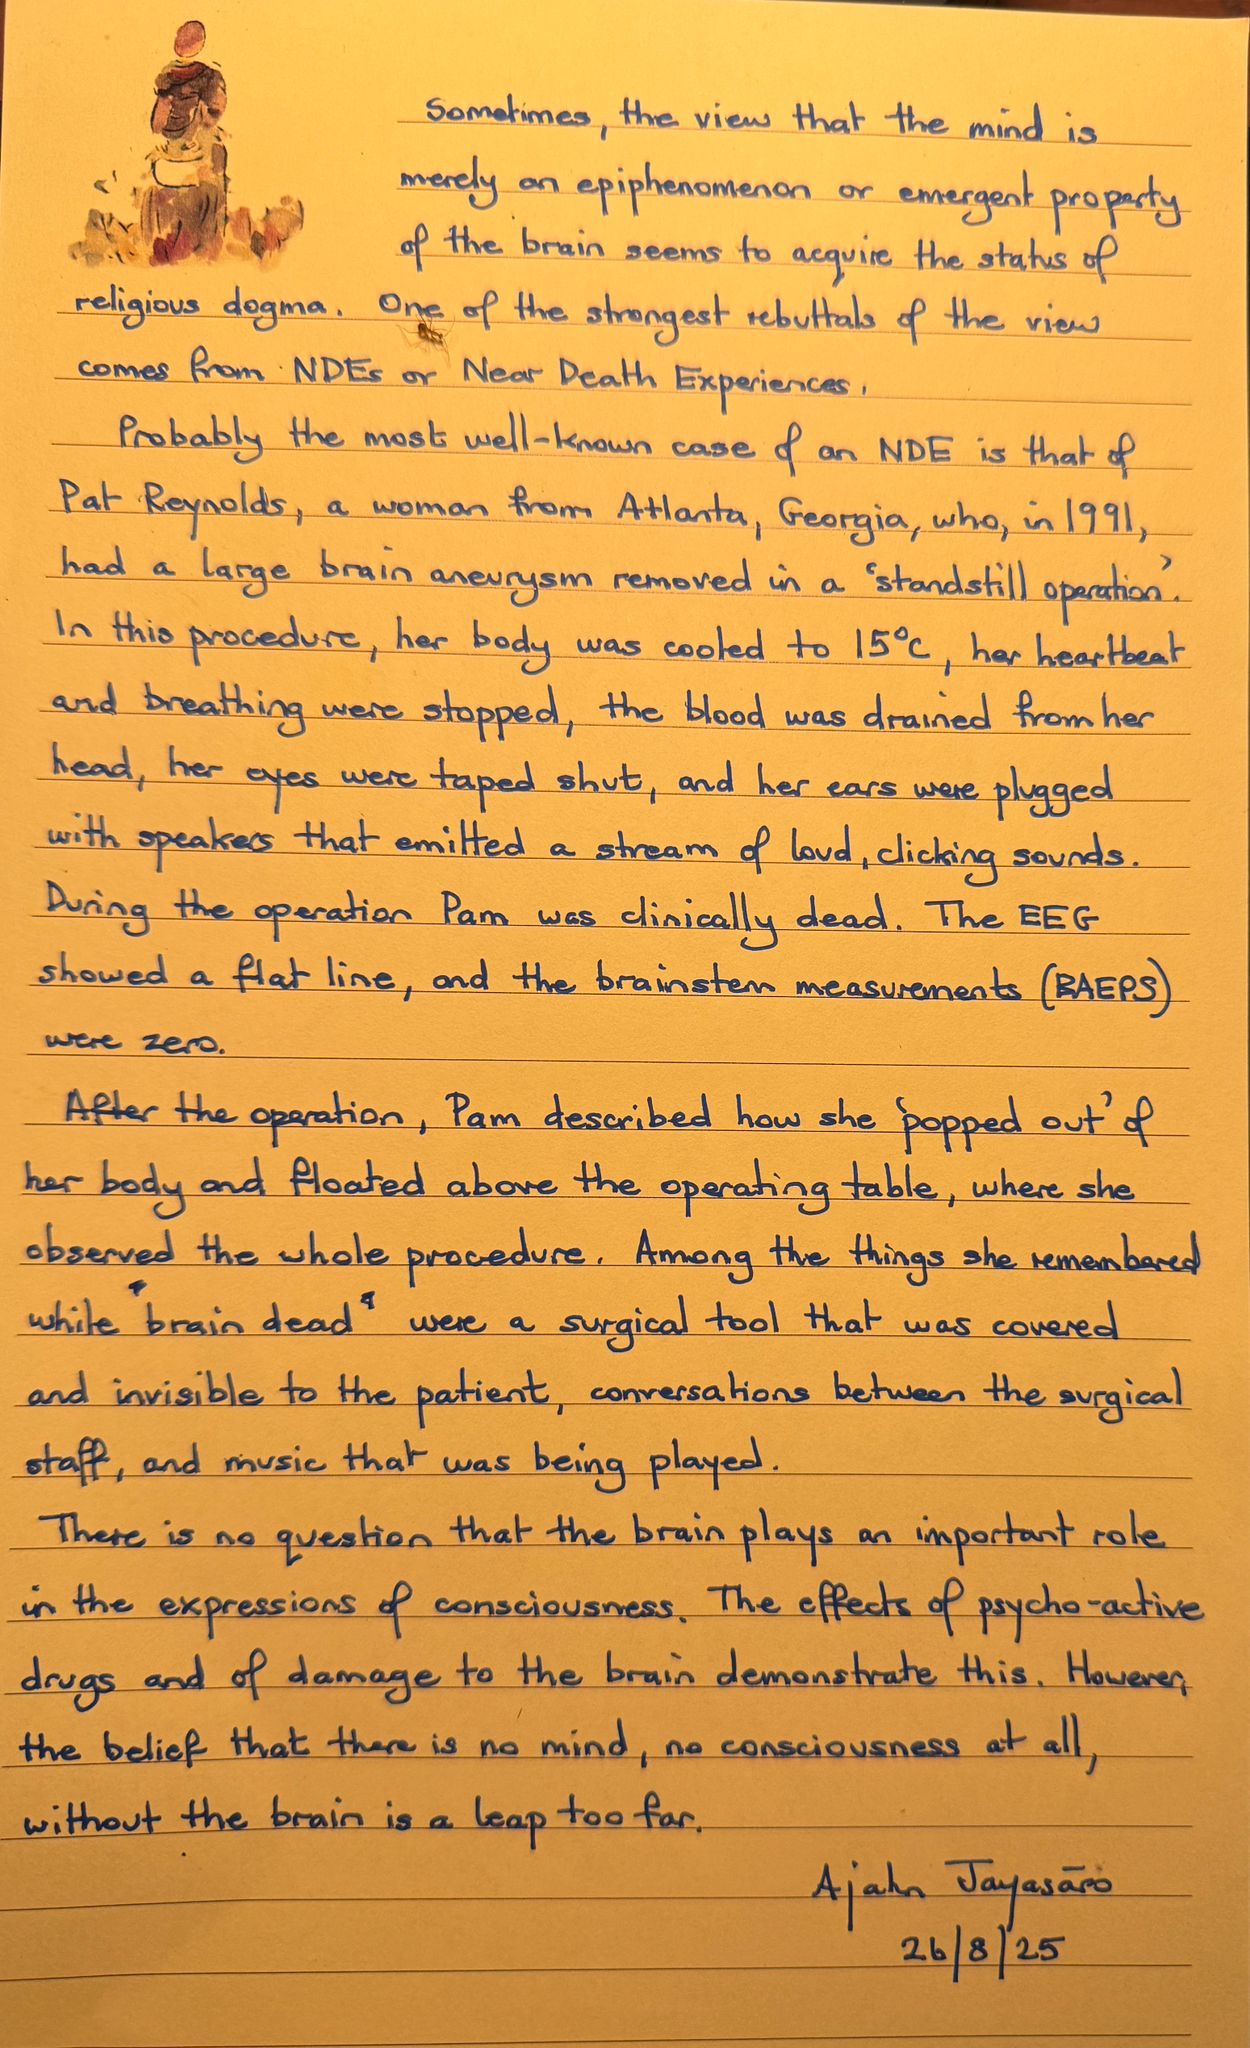 Sometimes, the view that the mind is
merely an epiphenomenon or emergent property
of the brain seems to acquire the status of
religious dogma. One of the strongest rebuttals of the view
comes from NDEs or Near Death Experiences.
Probably the most well-known case of an NDE is that of
Pat Reynolds, a woman from Atlanta, Georgia, who, in 1991,
had a large brain aneurysm removed in a 'standstill operation'.
In this procedure, her body was cooled to 15°C, her heartbeat
and breathing were stopped, the blood was drained from her
head, her eyes were taped shut, and her ears were plugged
with speakers that emitted a stream of loud, clicking sounds.
During the operation Pam was clinically dead. The EEG
showed a flat line, and the brainstem measurements (BAEPS)
were zero.
After the operation, Pam described how she 'popped out' of
her body and floated above the operating table, where she
observed the whole procedure. Among the things she remembered
while "brain dead" were a surgical tool that was covered
and invisible to the patient, conversations between the surgical
staff, and music that was being played.
There is no question that the brain plays an important role
in the expressions of consciousness. The effects of psycho-active
drugs and of damage to the brain demonstrate this. However,
the belief that there is no mind, no consciousness at all,
without the brain is a leap too far.
Ajahn Jayasāro
26/8/25